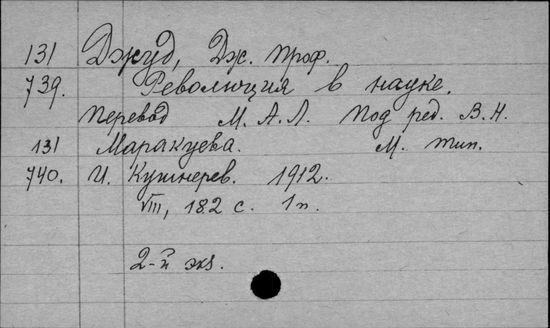 131 Джуд, Дж. проф.
739. Революция в науке.
Перевод М. А. Л. Под ред. В. Н.
131 Маракуева. М. тип.
740. И. Кушнерев. 1912.
VIII, 182 с. 1 п.
2-й экз.